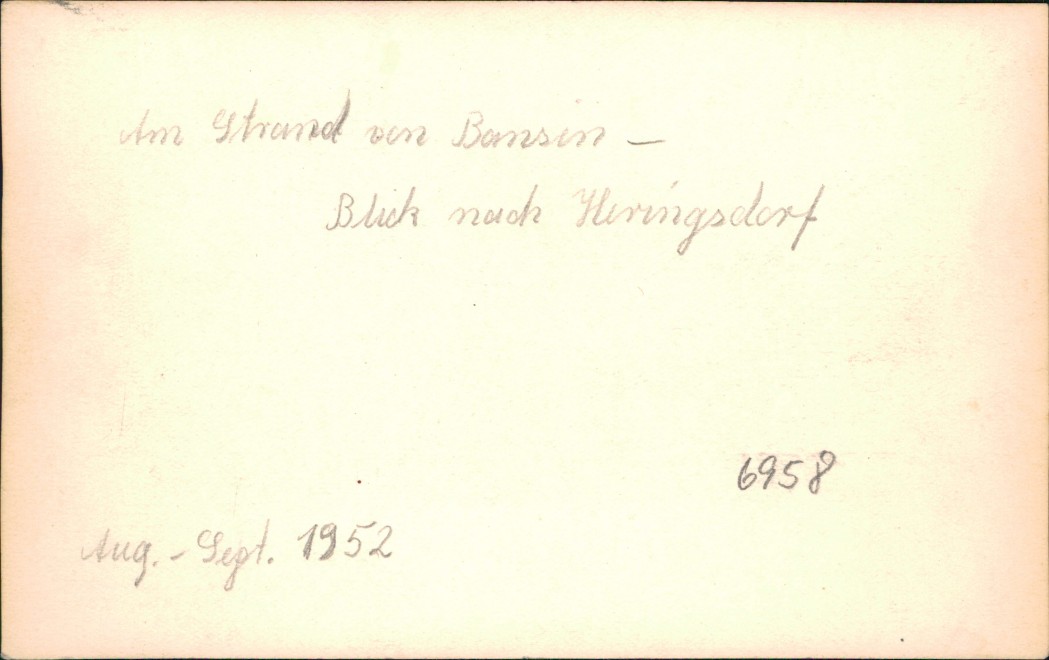 Am Strand von Bansin –
Blick nach Heringsdorf
6958
Aug. – Sept. 1952